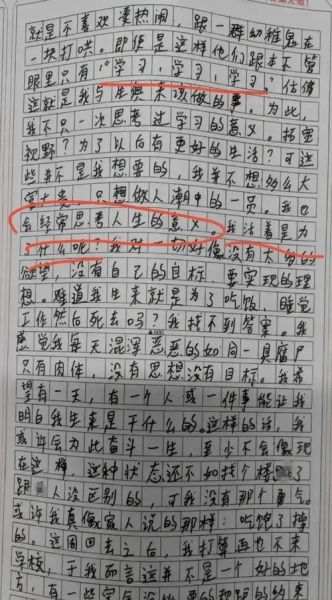 就是不喜欢凑热闹，跟一群幼稚鬼在
一块打哄。即使是这样他们跟本不管
眼里只有“学习，学习，学习。”估计
这就是我与生俱来该做的事，为此，
我不只一次思考过学习的意义。拓宽
视野？为了以后有更好的生活？可这
些并不是我想要的，我并不想多么大
富大贵，只想做人潮中的一员。我也
会经常思考人生的意义。我活着是为
了什么呢？我对一切好像没有太多的
欲望，没有自己的目标，要实现的理
想。难道我生来就是为了吃饭，睡觉
工作然后死去吗？我找不到答案。我
感觉我每天混浑恶恶的如同一具腐尸
只有肉体，没有思想没有目标。我希
望有一天，有一个人或一件事能让我
明白我生来是干什么的。这样的话，我
或许会为此奋斗一生，至少不会像现
在这样，这种状态还不如找个楼
跟 人没区别的，可我没有那个勇气。
或许我真像家人说的那样：吃饱了撑
的。这周回去之后，我打算再也不来
学校，于我而言这并不是一个好的地
方，有一些